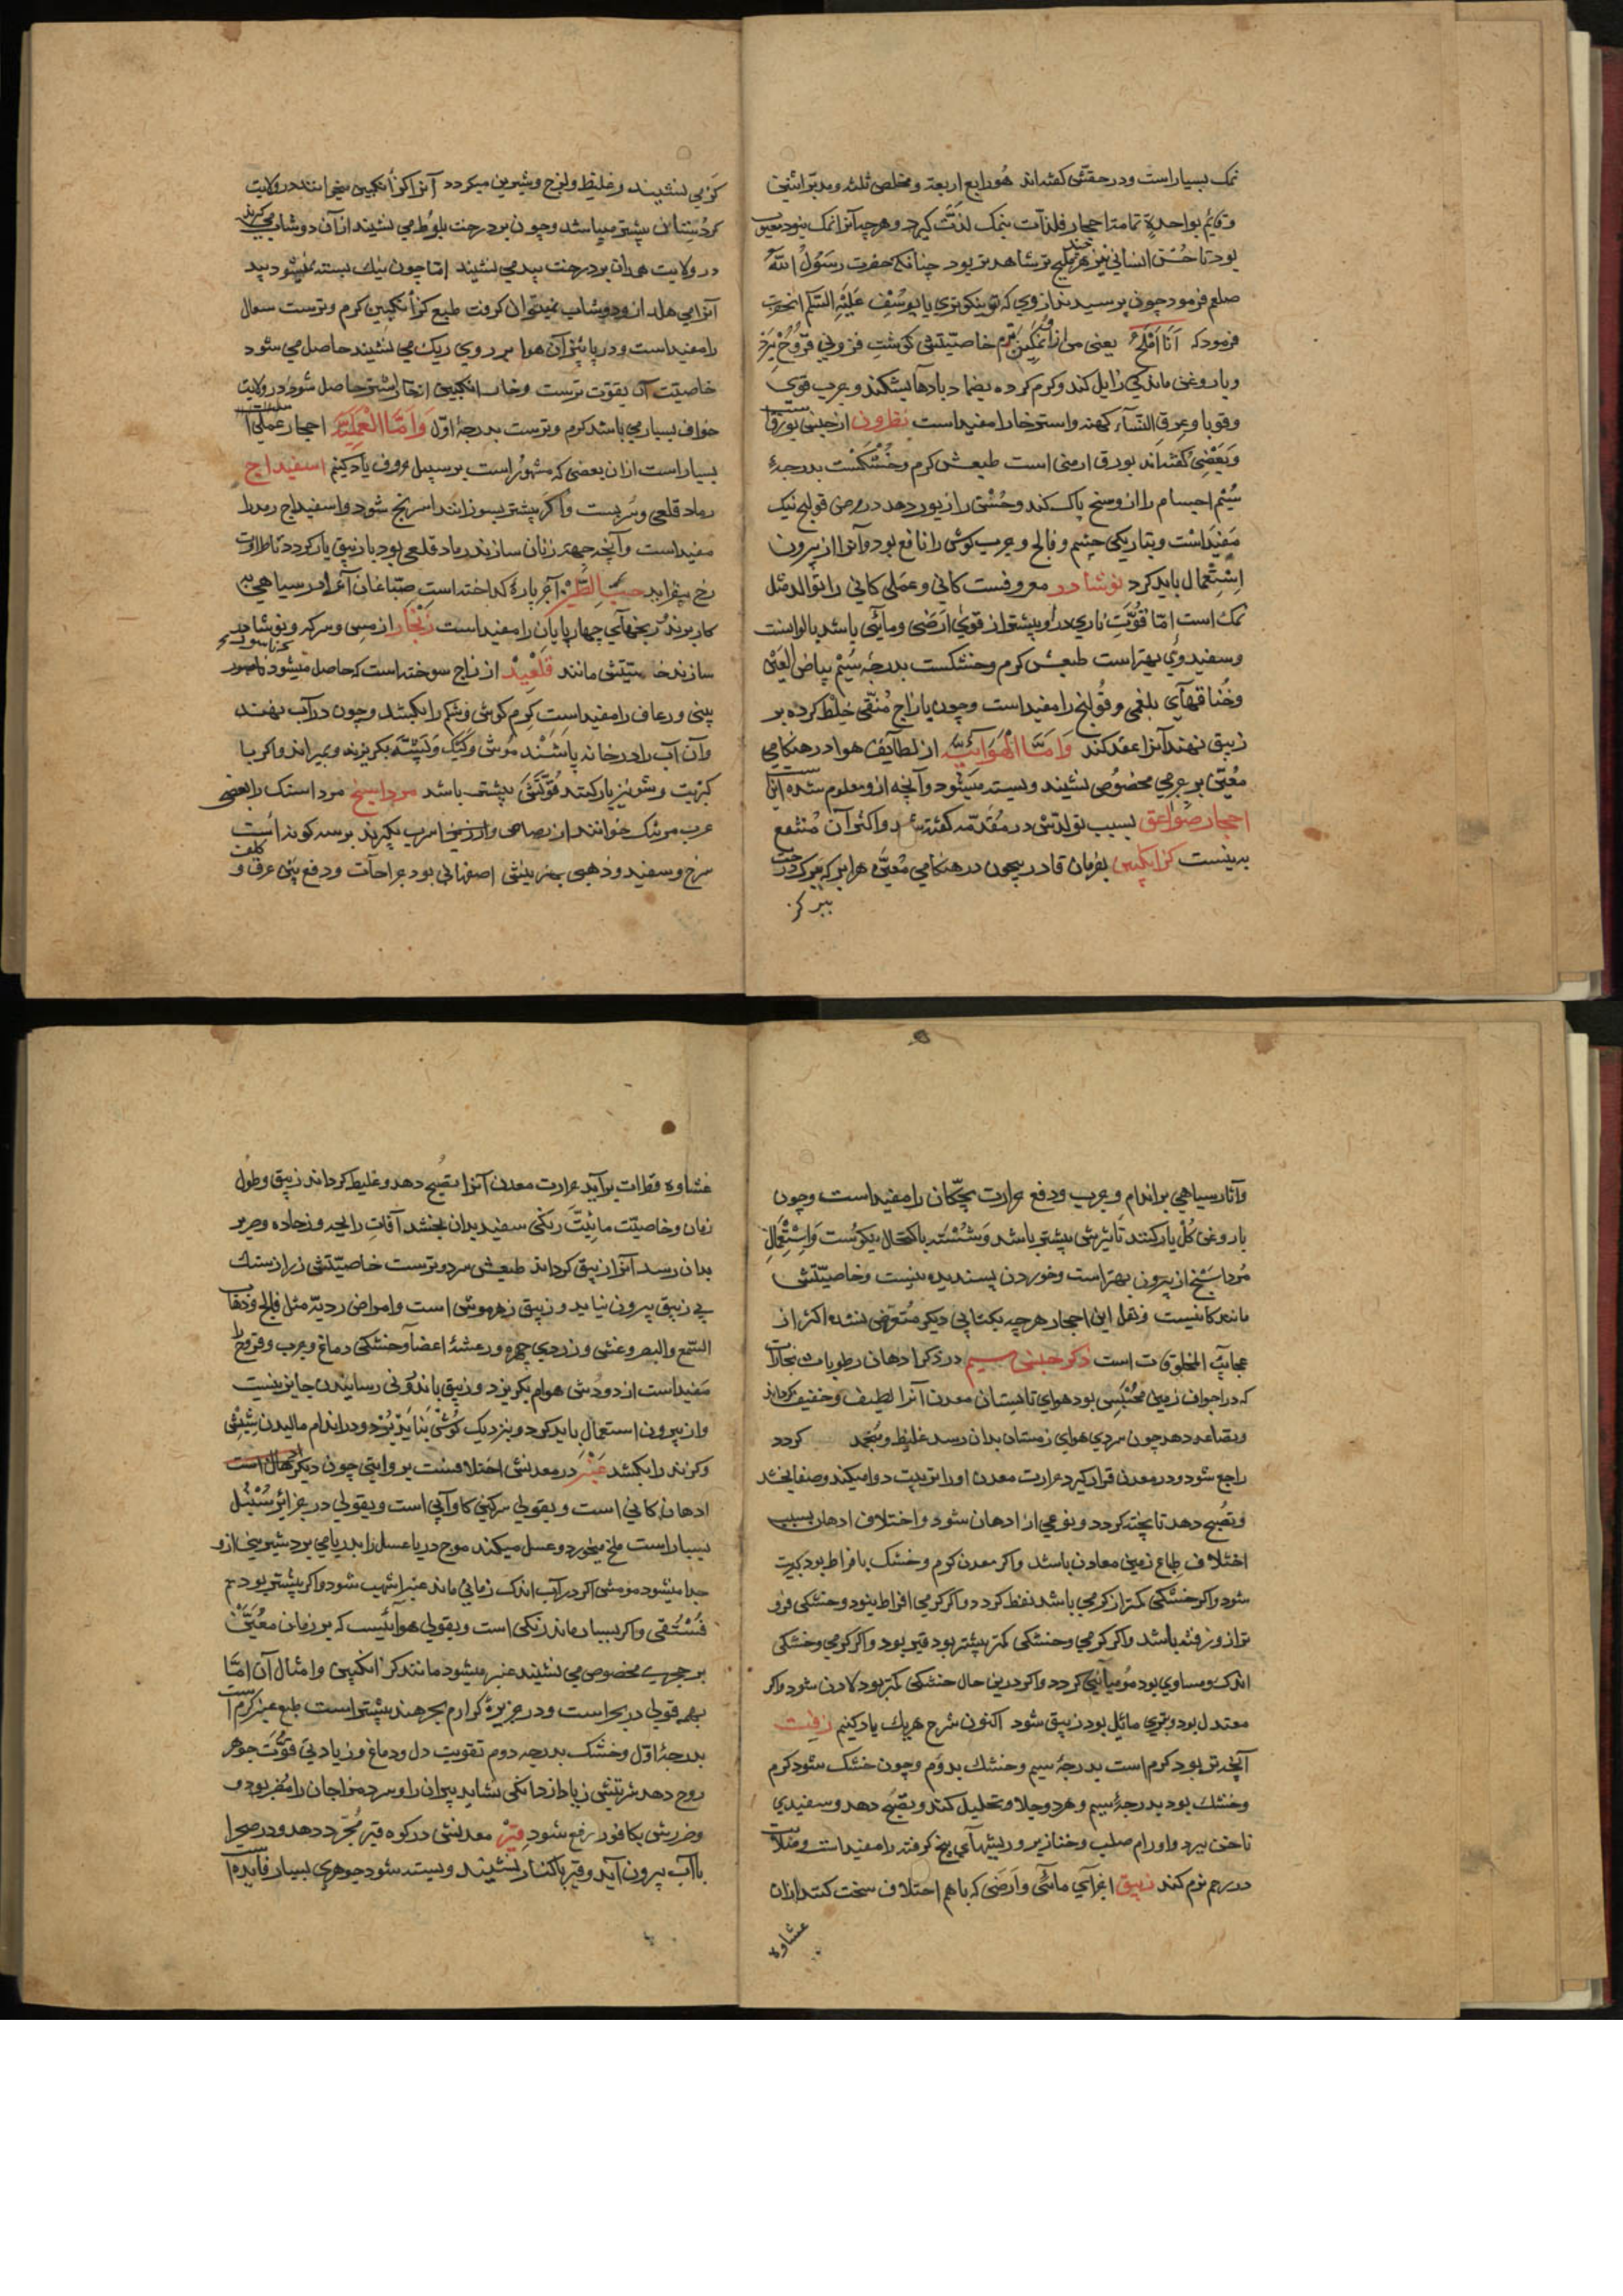 نمک بسیار است و در حقش گفته‌اند هو رابع اربعة و مخلص ثلثة و مدبر اثنین
و قایم بواحدة تمامت احجار فلذات بنمک لذت کیرد و هر چه آنرا نمک نبود معیوب
بود تا حسن انسانی نیز هر چند ملیح تر شاهد تر بود چنانکه حضرت رسول الله
صلعم فرمود چون پرسیدند از وی که تو نیکوتری یا یوسف علیه السلم انحضرت
فرمود که انا املح یعنی من از نمکین ترم خاصیتش گوشت فزونی قروح ببرد
و با روغن ماندگی زایل کند و کرم کرده بضماد بادها بشکند و جرب قوی
و قوبا و عرق النساء کهنه و استرخا را مفید است نطرون از جنس بورق است
و بعضی گفته‌اند بورق ارمنی است طبعش کرم و خشکست بدرجهٔ
سیم اجسام را از وسخ پاک کند و حسن را زیور دهد در مرض قولنج نیک
مفید است و بتاریکی چشم و فالج و جرب گوش را نافع بود و آنرا از بیرون
استعمال باید کرد نوشادر معروفست کانی و عملی کانی را توالد مثل
نمک است اما قوت ناری درو بیشتر از قوی ارضی و مائی باشد بالوانست
و سفید وی بهتر است طبعش کرم و خشکست بدرجه سیم بیاض العین
و خناقهای بلغمی و قولنج را مفید است و چون با زاج منقی خلط کرده بر
زیبق نهند آنرا عقد کند و اما الهوائیه از لطایف هوا در هنکامی
معین بر جرمی مخصوص نشیند و بسته میشود و آنچه ازو معلوم شده اینست
احجار صواعق بسبب تولدش در مقدمه گفته شد و اکثر آن منتفع
به نیست کزانکبین بفرمان قادر بیچون در هنکامی معین هر ابر که بر درخت
ببر کز
کزمی نشیند و غلیظ و لزج و شیرین میکردد آنرا کزانکبین میخوانند در ولایت
کردستان بیشتر میباشد و چون بر درخت بلوط می نشیند از آن دوشاب می کیرند
در ولایت همدان بر درخت بید می نشیند اما چون نیک بسته نمیشود بید
آنرا می هلد ازو دوشاب نمیتوان کرفت طبع کزانکبین کرم و ترست سعال
را مفید است و در پائیز آن هوا بر روی ریک می نشیند حاصل می شود
خاصیت آن بقوت ترست و خار انکبین از خار اشتر حاصل شود در ولایت
خواف بسیار می باشد کرم و ترست بدرجهٔ اول و اما العملیه احجار عملی
بسیار است از ان بعضی که مشهور است بر سبیل معروف یاد کنیم اسفیداج
رماد قلعی و سربست و اکر بیشتر بسوزانند اسرنج شود و اسفیداج رمد را
مفید است و آنچه جهت زنان سازند رماد قلعی بود با زیبق یار کردد تا طراوت
رخ بیفزاید آجر پارهٔ کداخته است صباغان آنرا در سیاهی به
کار برند و ریخهای چهارپایان را مفید است زنجار از مس و سرکه و نوشادر
سازند خاصیتش مانند قلعید از زاج سوخته است که حاصل میشود ناصور
بینی و رعاف را مفید است کرم کوش و شکم را بکشد و چون در آب نهند
و آن آب را در خانه پاشند موش و کیک و پشه بکریزند و بمیراند و اکر با
کبریت و شونیز یار کنند قوتش بیشتر باشد مرداسنج مرداسنک را بعضی
عرب مرتک خوانند از رصاص و ارزیز اسرب بگیرند بر سه کونه است
سرخ و سفید و ذهبی بهترینش اصفهانی بود جراحات و دفع بوی عرق و کلف
و آثار سیاهی بر اندام و جرب و دفع حرارت بچکان را مفید است و چون
با روغن کل یار کنند تأثیرش بیشتر باشد و شسته با کحال نیکوست و استعمال
مرداسنج از بیرون بهتر است و خوردن پسندیده نیست و خاصیتش
مانند کانیست و نقل این احجار هر چه بکتابی دیکر متعرض نشده اکثر از
عجایب المخلوقات است ذکر جنس سیم در ذکر ادهان رطوبات و بخارات
که در اجواف زمین محتبس بود هوای تابستان معدن آنرا لطیف و خفیف کرداند
و بصاعد دهد چون سردی هوای زمستان بدان رسد غلیظ و منجمد کردد
راجع شود و در معدن قرار کیرد حرارت معدن او را تربیت دوا میکند و صفا بخشد
و نضج دهد تا پخته کردد و نوعی از ادهان شود و اختلاف ادهان بسبب
اختلاف طباع زمین معادن باشد و اکر معدن کرم و خشک بافراط بود کبریت
شود و اکر خشکی کمتر از کرمی باشد نفط کردد و اکر کرمی افراط نبود و خشکی فزو
تر ازو رفته باشد و اکر کرمی و خشکی کمتر بیشتر بود قیر بود و اکر کرمی و خشکی
اندک و مساوی بود مومیائی کردد و اکر درین حال خشکی کمتر بود لادن شود و اکر
معتدل بود و بتری مائل بود زیبق شود اکنون شرح هر یک یاد کنیم زفت
آنچه تر بود کرم است بدرجهٔ سیم و خشک بدوم و چون خشک شود کرم
و خشک بود بدرجهٔ سیم و هر دو جلا و تحلیل کنند و نضج دهد و سفیدی
ناخن ببرد و اورام صلب و خنازیر و ریشهای بیخ کرفته را مفید است و صلابت
در رحم نرم کند زیبق اجزای مائی و ارضی که با هم اختلاف سخت کنند از آن
غشاوه
غشاوه قطرات برآید حرارت معدن آنرا نضج دهد و غلیظ کرداند زیبق و طول
زمان و خاصیت مائیت رنکی سفید بدان بخشد آفات رایحه و زجاده و حر بر
بدان رسد آنرا زیبق کرداند طبعش سرد و ترست خاصیتش زر از سنک
بی زیبق بیرون نیاید و زیبق زهر موش است و امراض ردیه مثل فالج و ذهاب
السمع و البصر و غشی و زردی چهره و رعشهٔ اعضا و خشکی دماغ و جرب و قروح را
مفید است از دودش هوام بکریزد و زیبق باندرونی رسانیدن جایز نیست
و از بیرون استعمال باید کرد و بنزدیک کوش نباید برد و در اندام مالیدن شپش
و کزند را بکشد عنبر در معدنش اختلافست بروایتی چون دیکر
ادهان کانی است و بقولی سرکین کاو آبی است و بقولی در جزایر سنبل
بسیار است ملخ میخورد و عسل میکند موج دریا عسل را بدریا می برد شیرینی ازو
جدا میشود مومش اکر در آب اندک زمانی ماند عنبر اشهب شود و اکر بیشتر بود
فستقی و اکر بسیار ماند زنکی است و بقولی هوائیست که بر زمان معین
بر حجری مخصوص می نشیند عنبر میشود مانند کزانکبین و امثال آن اما
بهمه قولی در بحر است و در جزیرهٔ کوارم بحر هند بیشتر است طبع عنبر کرم است
بدرجهٔ اول و خشک بدرجه دوم تقویت دل و دماغ و زیادتی قوت جوهر
روح دهد شربتش زیاد از دانکی نشاید پیران را و سرد مزاجان را مضر بود و
و ضررش بکافور رفع شود قیر معدنش در کوه قیر مجرد دهد و در صحرا
با آب بیرون آید و قیر با کنار نشیند و بسته شود جوهری بسیار فایده است